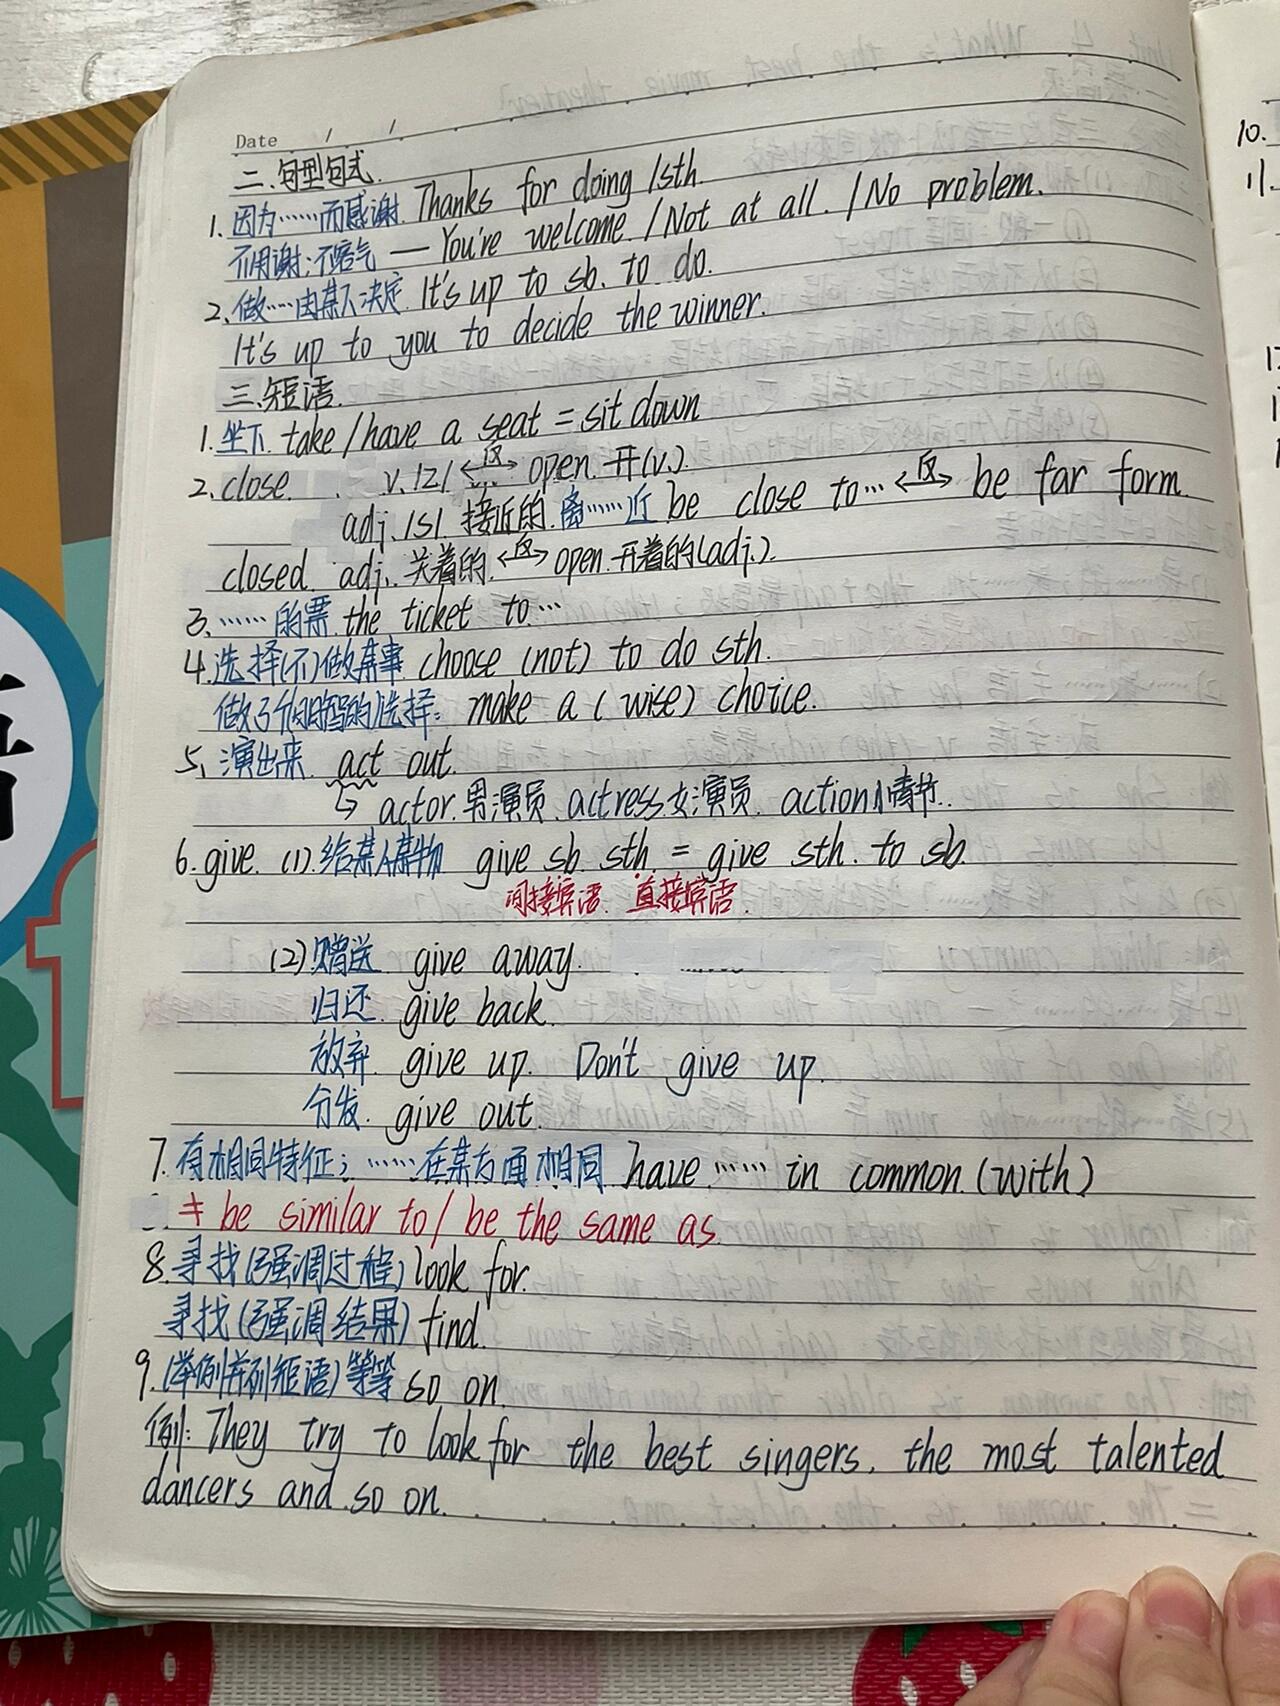 Date / /
二、句型句式.
1.因为……而感谢.Thanks for doing/sth.
不用谢:不客气 — You're welcome./Not at all./No problem.
2.做……由某人决定.It's up to sb. to do.
It's up to you to decide the winner.
三、短语.
1.坐下 take/have a seat = sit down
2.close. v. /z/ ←反→ open.开(v.).
adj. /s/ 接近的.离……近 be close to… ←反→ be far form.
closed. adj. 关着的.←反→ open.开着的(adj.).
3.……的票 the ticket to…
4.选择(不)做某事 choose (not) to do sth.
做了个(明智的)选择: make a (wise) choice.
5.演出来 act out.
↳ actor.男演员.actress.女演员. action.情节.
6.give. (1).给某人某物 give sb. sth. = give sth. to sb.
间接宾语. 直接宾语.
(2)赠送 give away.
归还. give back.
放弃 give up. Don't give up.
分发. give out.
7.有相同特征;……在某方面相同 have …… in common.(with)
≠ be similar to/ be the same as.
8.寻找(强调过程) look for.
寻找(强调结果) find.
9.(举例并列短语) 等等 so on.
例: They try to look for the best singers, the most talented
dancers and so on.
10.
11.